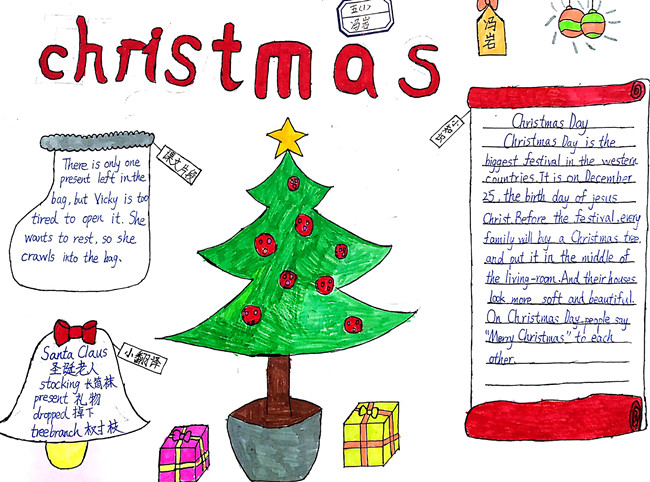 christmas
五(1)
冯岩
冯岩
课文片段
There is only one
present left in the
bag, but Vicky is too
tired to open it. She
wants to rest, so she
crawls into the bag.
小翻译
Santa Claus
圣诞老人
stocking 长筒袜
present 礼物
dropped 掉下
treebranch 树枝
Christmas Day
Christmas Day is the
biggest festival in the western
countries. It is on December
25, the birth day of jesus
Christ. Before the festival, every
family will buy a Christmas tree,
and put it in the middle of
the living-room. And their houses
look more soft and beautiful.
On Christmas Day, people say
"Merry Christmas" to each
other.